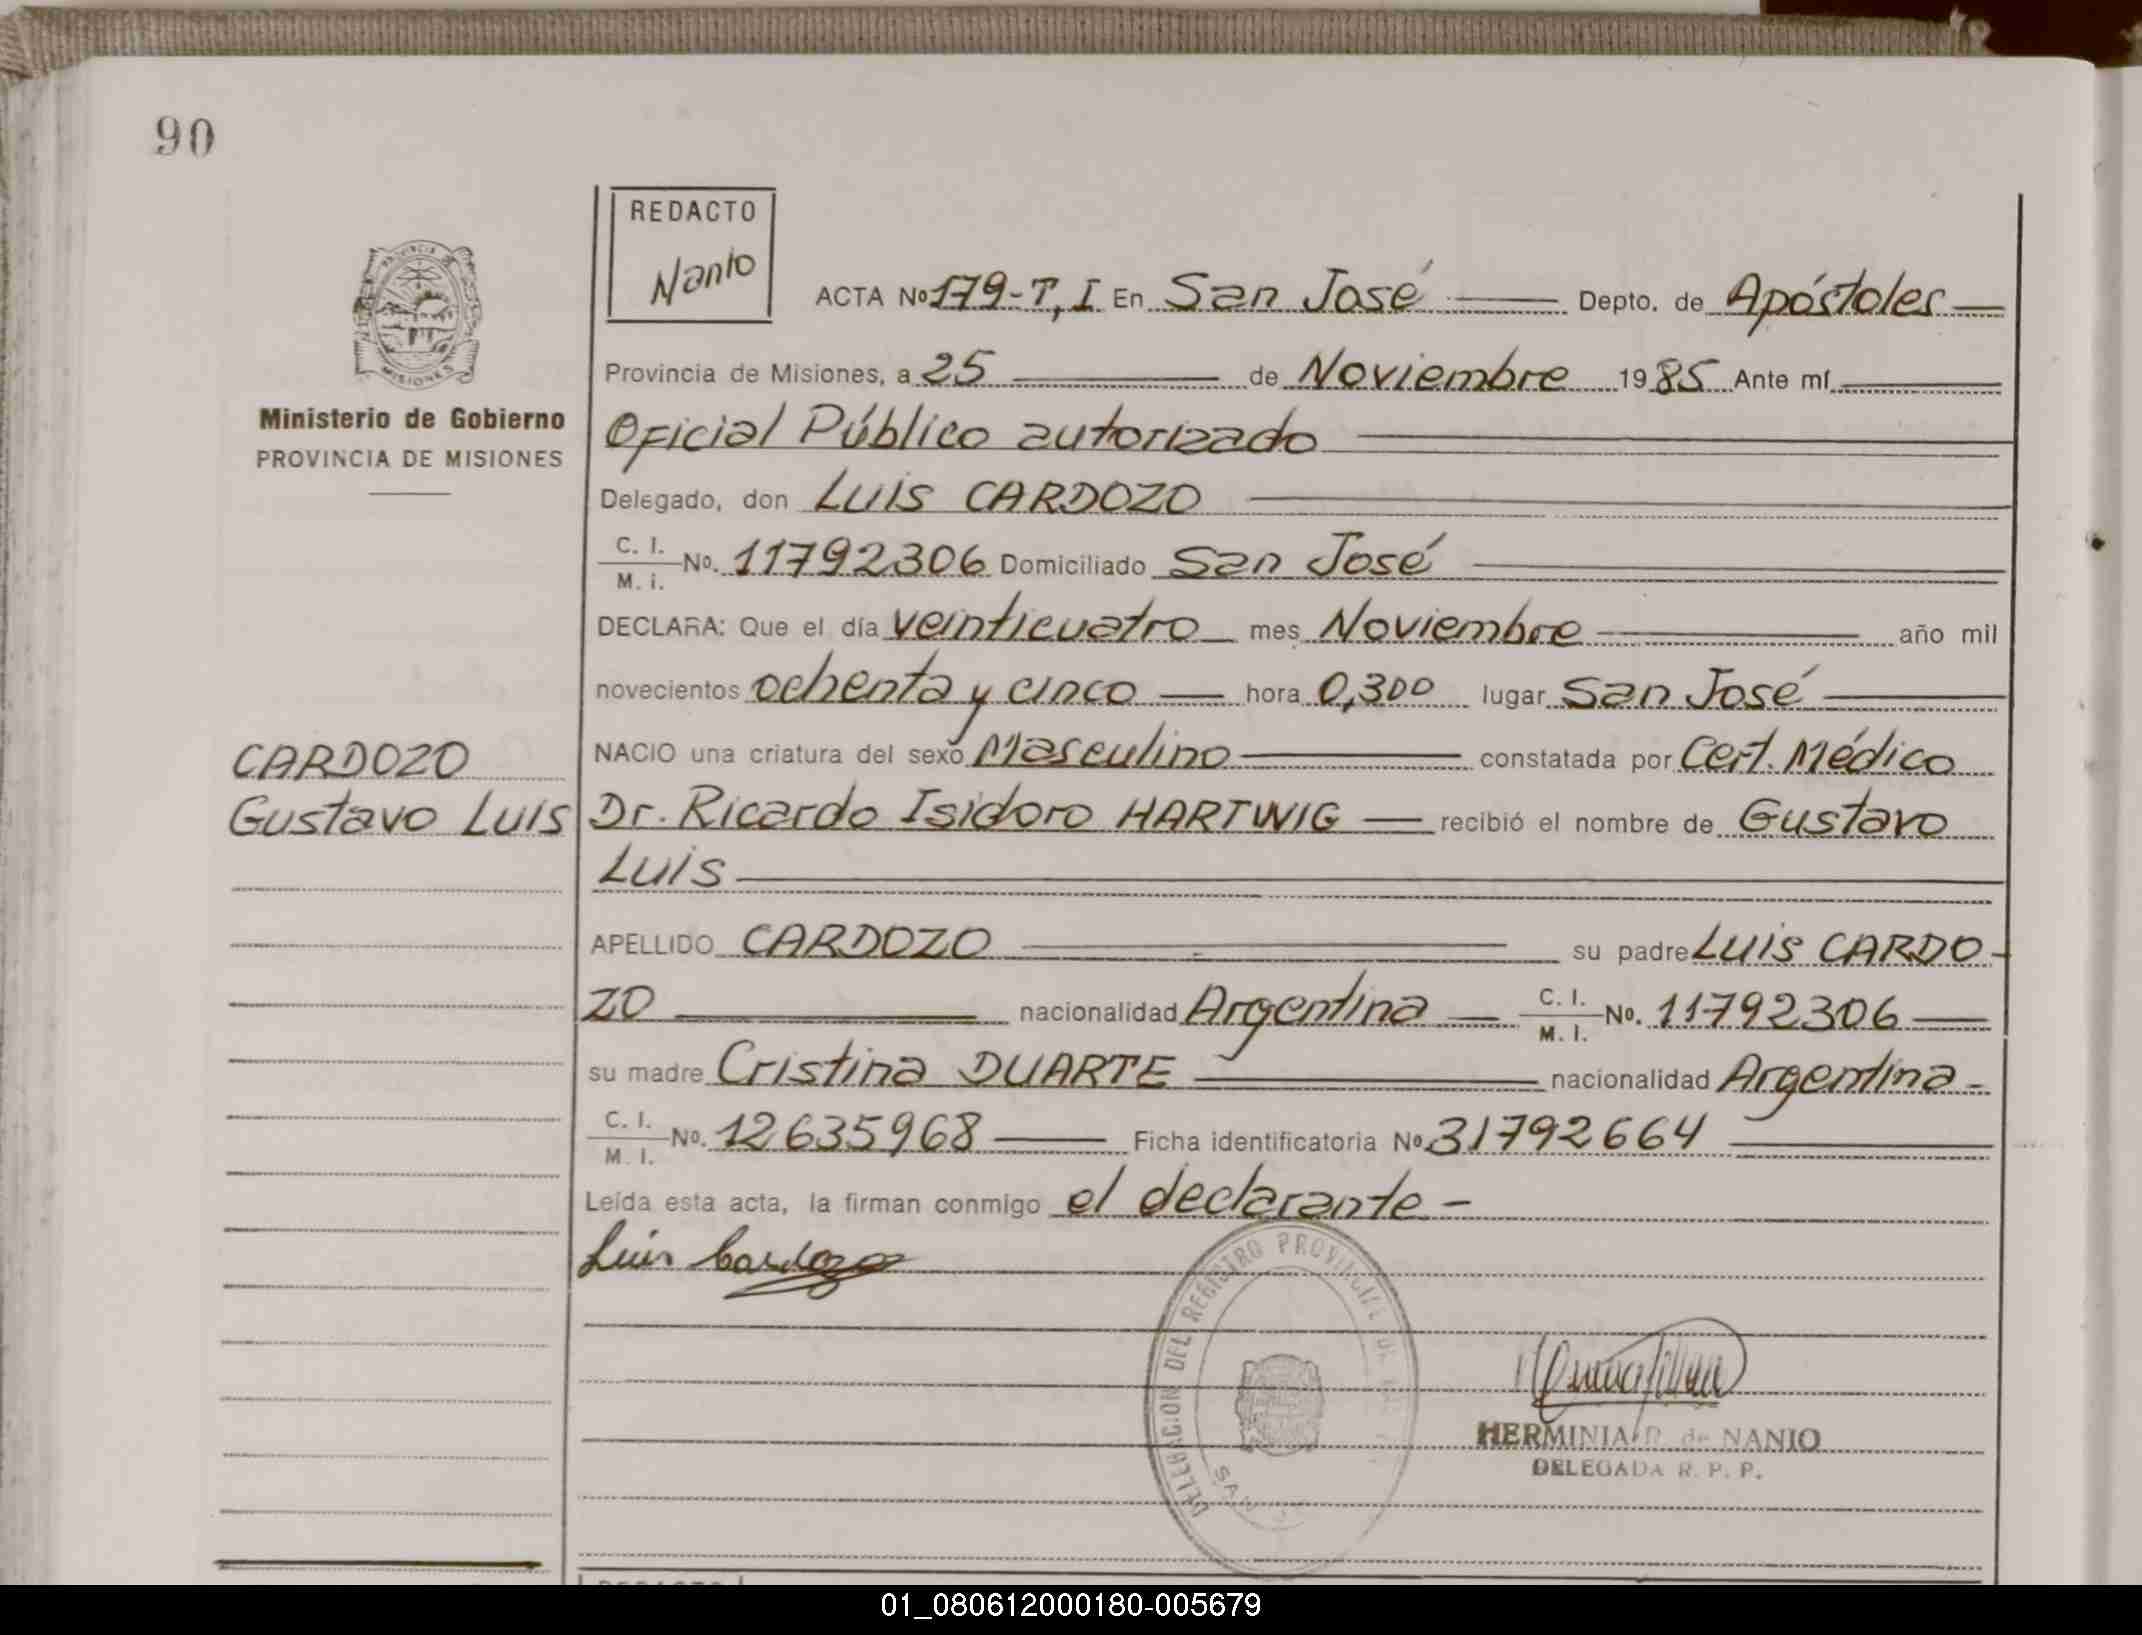 90
REDACTO
Nanio
PROVINCIA
MISIONES
Ministerio de Gobierno
PROVINCIA DE MISIONES
ACTA Nº 179-T, I En San José Depto. de Apóstoles
Provincia de Misiones, a 25 de Noviembre 1985 Ante mí
Oficial Público autorizado
Delegado, don Luis CARDOZO
C. I.
M. i. Nº. 11792306 Domiciliado San José
DECLARA: Que el día veinticuatro mes Noviembre año mil
novecientos ochenta y cinco hora 0,300 lugar San José
NACIO una criatura del sexo Masculino constatada por Cert. Médico
CARDOZO
Gustavo Luis
Dr. Ricardo Isidoro HARTWIG recibió el nombre de Gustavo
Luis
APELLIDO CARDOZO su padre Luis CARDO-
ZO nacionalidad Argentina C. I.
M. I. Nº. 11792306
su madre Cristina DUARTE nacionalidad Argentina -
C. I.
M. I. Nº. 12635968 Ficha identificatoria Nº 31792664
Leída esta acta, la firman conmigo el declarante -
Luis Cardozo
DELEGACION DEL REGISTRO PROVINCIAL DE
SAN
HERMINIA R. de NANIO
DELEGADA R. P. P.
REDACTO
01_080612000180-005679